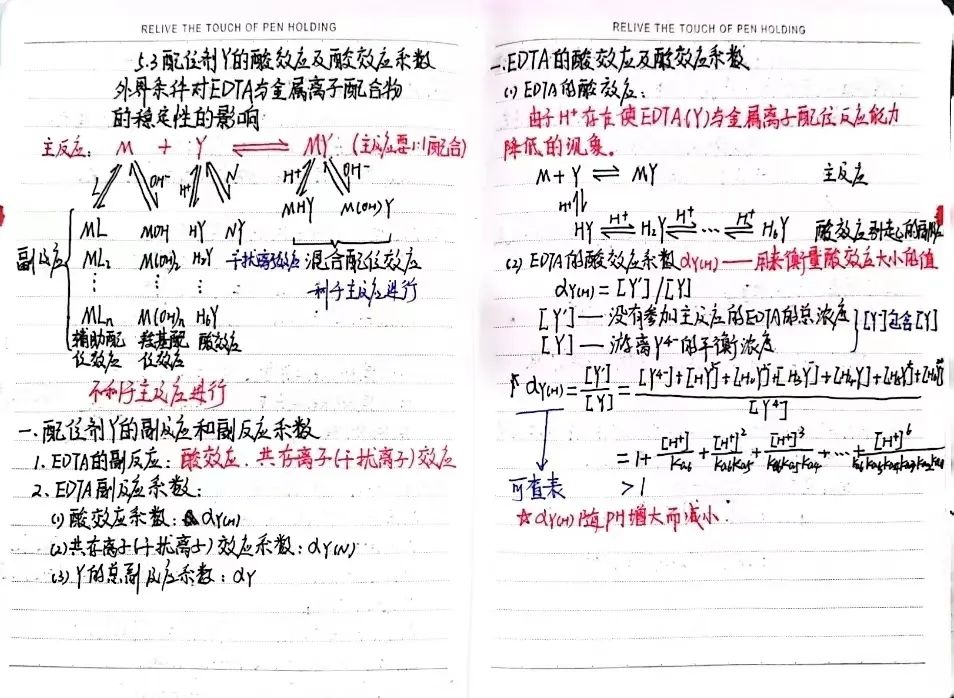 RELIVE THE TOUCH OF PEN HOLDING
5.3配位剂Y的酸效应及酸效应系数
外界条件对EDTA与金属离子配合物
的稳定性的影响
主反应: M + Y ⇌ MY (主反应要1:1配合)
L OH⁻ H⁺ N H⁺ OH⁻
MHY M(OH)Y
副反应
ML MOH HY NY
ML₂ M(OH)₂ H₂Y 干扰离子效应 混合配位效应
⋮ ⋮ ⋮ 利于主反应进行
MLₙ M(OH)ₙ H₆Y
辅助配 羟基配 酸效应
位效应 位效应
不利于主反应进行
一、配位剂Y的副反应和副反应系数
1. EDTA的副反应: 酸效应、共存离子(干扰离子)效应
2、EDTA副反应系数:
(1) 酸效应系数: αY(H)
(2)共存离子(干扰离子)效应系数: αY(N)
(3) Y的总副反应系数: αY
RELIVE THE TOUCH OF PEN HOLDING
二、EDTA的酸效应及酸效应系数
(1) EDTA的酸效应:
由于H⁺存在使EDTA(Y)与金属离子配位反应能力
降低的现象。
M + Y ⇌ MY 主反应
H⁺⇅
HY ⇌ H₂Y ⇌ ⋯ ⇌ H₆Y 酸效应引起的副反应
H⁺ H⁺ H⁺
(2) EDTA的酸效应系数αY(H) — 用来衡量酸效应大小的值
αY(H) = [Y']/[Y]
[Y'] — 没有参加主反应的EDTA的总浓度
[Y] — 游离Y⁴⁻的平衡浓度
[Y']包含[Y]
☆ αY(H) = [Y']/[Y] = [Y⁴⁻]+[HY³⁻]+[H₂Y²⁻]+[H₃Y⁻]+[H₄Y]+[H₅Y⁺]+[H₆Y²⁺]/[Y⁴⁻]
= 1 + [H⁺]/Ka₆ + [H⁺]²/Ka₆Ka₅ + [H⁺]³/Ka₆Ka₅Ka₄ + ⋯ + [H⁺]⁶/Ka₆Ka₅Ka₄Ka₃Ka₂Ka₁
可查表 >1
☆ αY(H)随pH增大而减小.